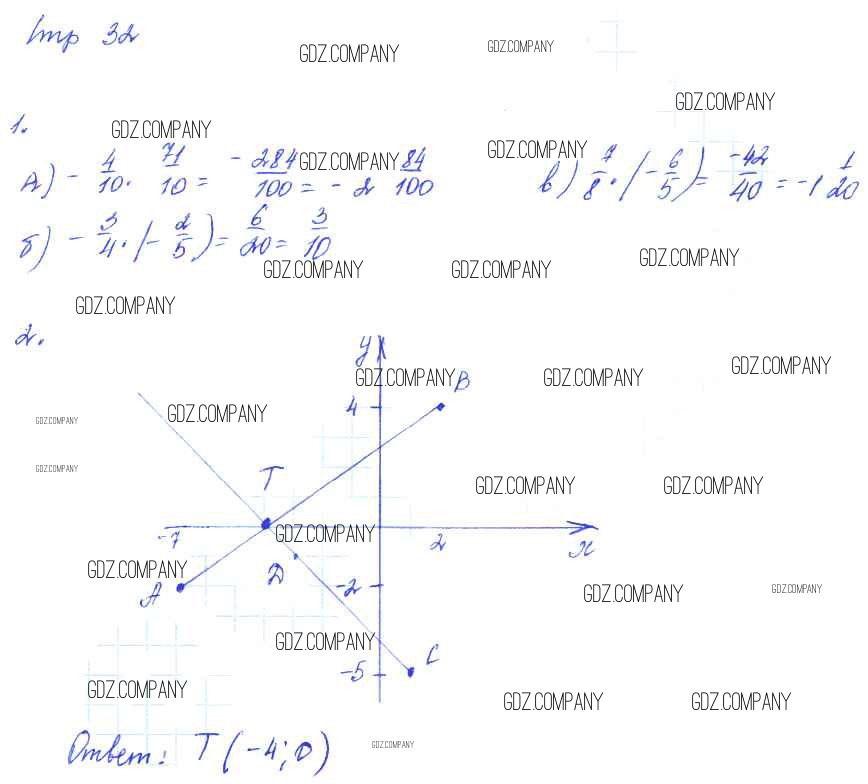 Стр 32
GDZ.COMPANY GDZ.COMPANY
GDZ.COMPANY
1.
GDZ.COMPANY
GDZ.COMPANY GDZ.COMPANY
А) - 4/10 · 71/10 = -284/100 = -2 84/100
в) 7/8 · (-6/5) = -42/40 = -1 1/20
б) - 3/4 · (-2/5) = 6/20 = 3/10
GDZ.COMPANY GDZ.COMPANY GDZ.COMPANY
GDZ.COMPANY
2.
y
GDZ.COMPANY B GDZ.COMPANY GDZ.COMPANY
GDZ.COMPANY 4
GDZ.COMPANY
GDZ.COMPANY
T
GDZ.COMPANY GDZ.COMPANY
-7 GDZ.COMPANY 2 x
GDZ.COMPANY D -2
A GDZ.COMPANY GDZ.COMPANY
GDZ.COMPANY
-5 C
GDZ.COMPANY GDZ.COMPANY GDZ.COMPANY
Ответ: T(-4;0)
GDZ.COMPANY